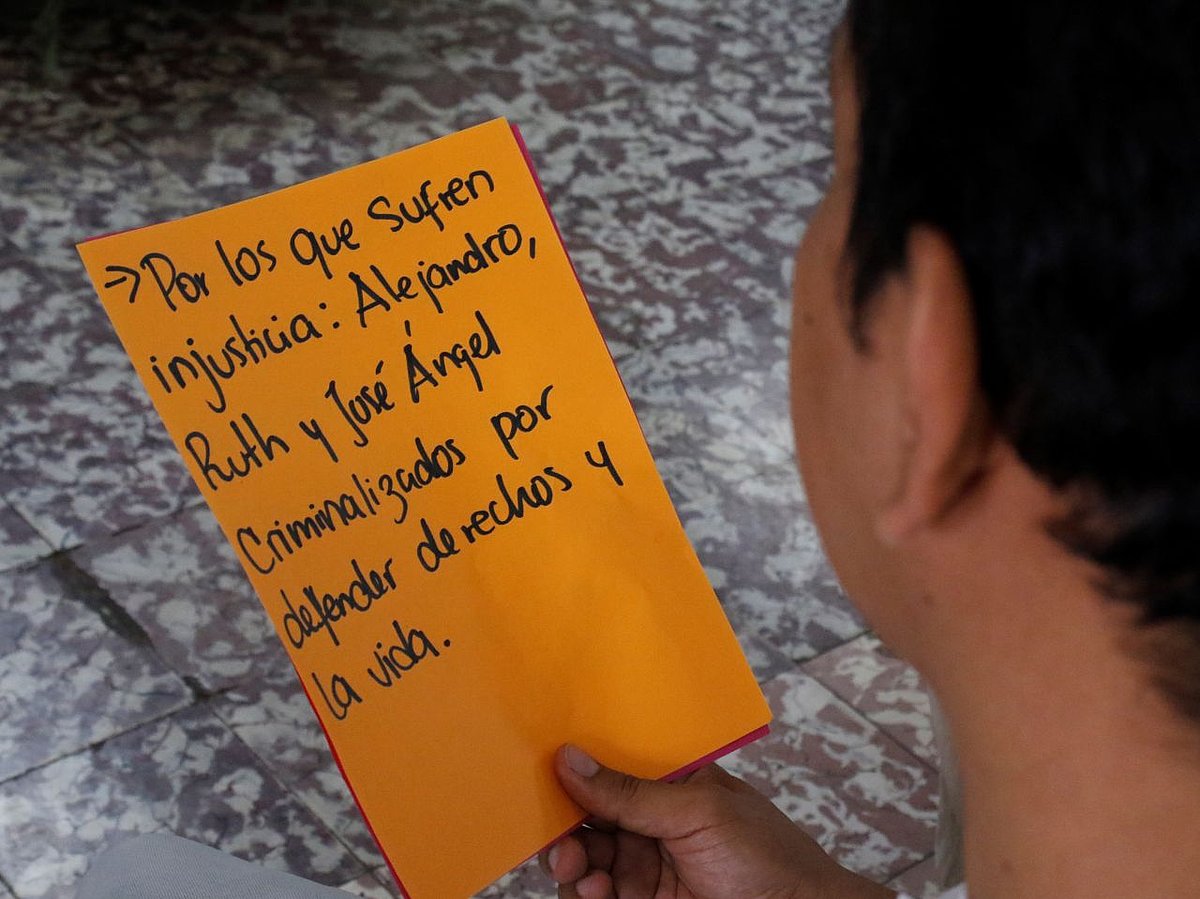 → Por los que sufren
injusticia: Alejandro,
Ruth y José Ángel
Criminalizados por
defender derechos y
la vida.